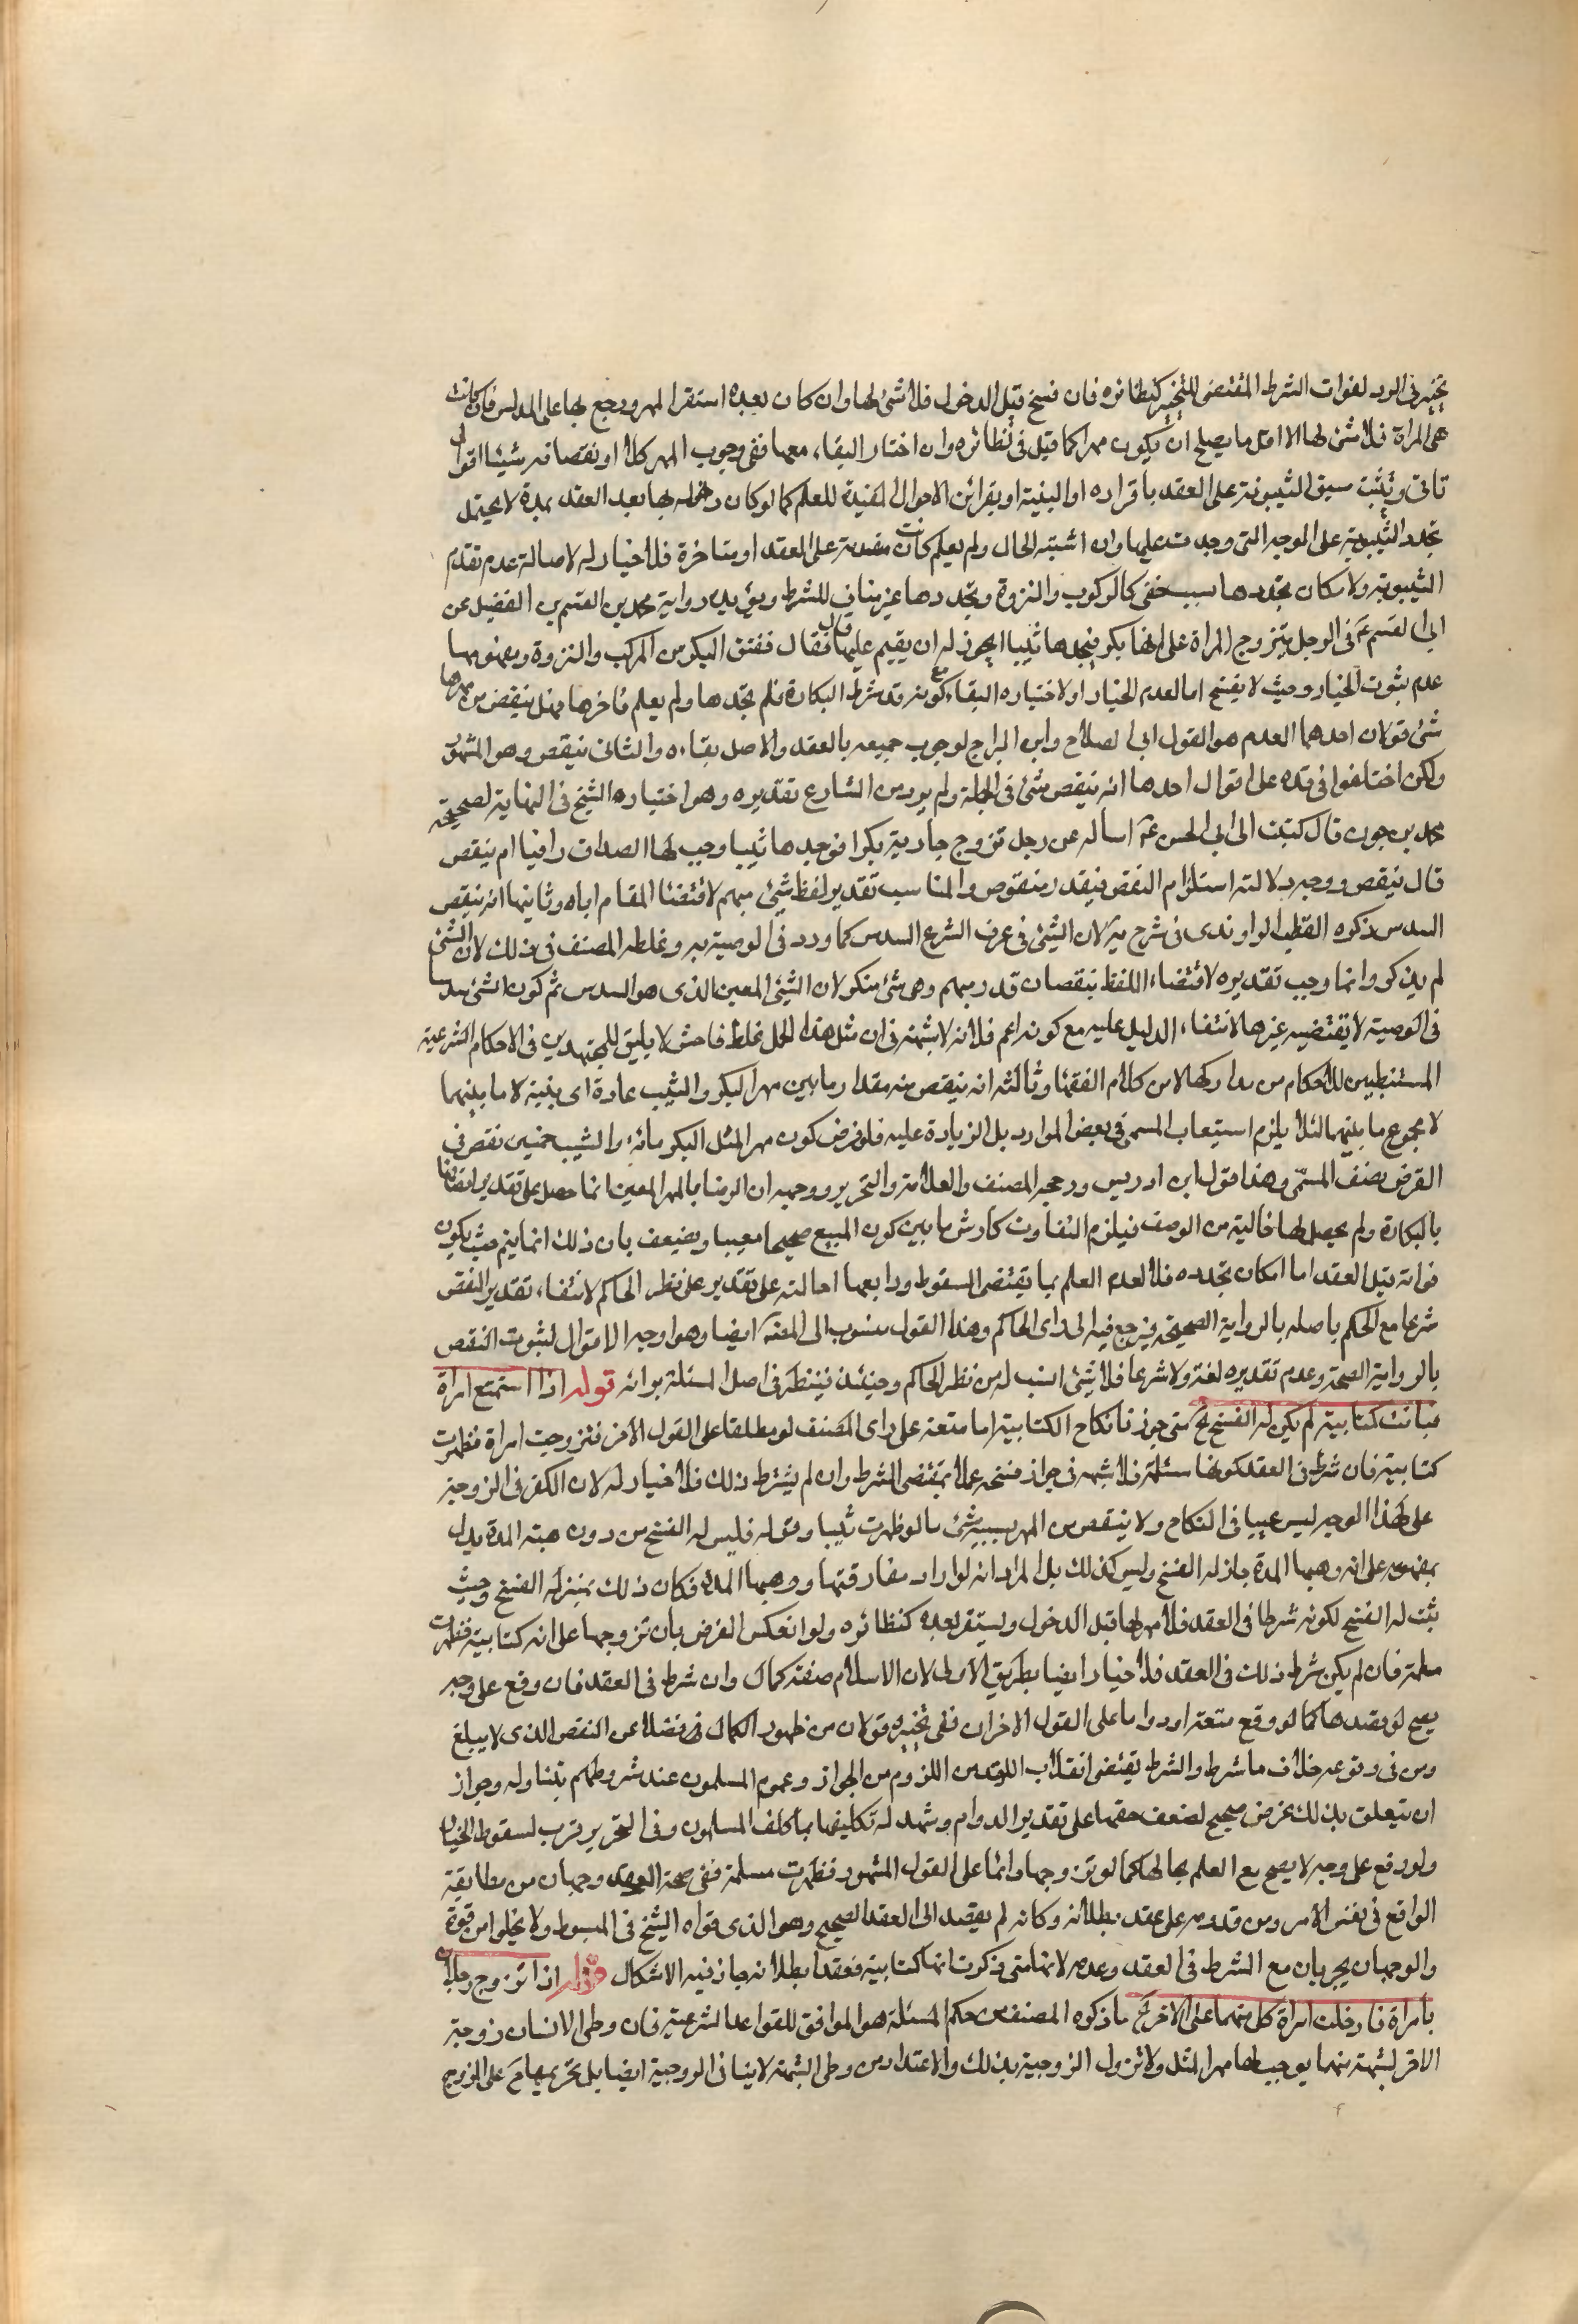 تخير في الرد لفوات الشرط المقتضى للتخير كنظائره فان فسخ قبل الدخول فلا شئ لها وان كان بعده استقر المهر ورجع بها على المدلس فان كانت
هى المراة فلا شئ لها الا اقل ما يصلح ان يكون مهرا كما قيل فى نظائره وان اختار البقاء معها ففى وجوب المهر كلا او نقصانه شيئا اقوال
تاتى ويثبت سبق الثيبوبة على العقد باقراره او البينة او بقرائن الاحوال المفيدة للعلم كما لو كان دخوله بها بعد العقد بمدة لا يحتمل
تجدد الثيبوبة على الوجه التى وجدت عليها وان اشتبه الحال ولم يعلم كانت متقدمة على العقد او متاخرة فلا خيار له لاصالة عدم تقدم
الثيبوبة ولامكان تجددها بسبب خفى كالركوب والنزوة وتجددها غير مناف للشرط ويؤيده رواية محمد بن القسم بن الفضيل عن
ابى القسم عم فى الرجل يتزوج المراة على انها بكر فيجدها ثيبا ايجوز له ان يقيم عليها قال فقال فتفتق البكر من المركب والنزوة ومفهومها
عدم ثبوت الخيار وحيث لا يفسخ اما لعدم الخيار او لاختياره البقاء مع كونه قد شرط البكارة فلم يجدها ولم يعلم تاخرها فهل ينقص من مهرها
شئ قولان احدهما العدم هو القول ابى الصلاح وابن البراج لوجوب جميعه بالعقد والاصل بقاءه والثانى ينقص وهو المشهور
ولكن اختلفوا فى قدره على اقوال احدها انه ينقص شئ فى الجملة ولم يرد من الشارع تقديره وهو اختياره الشيخ فى النهاية لصحيحة
محمد بن جون قال كتبت الى ابى الحسن عم اساله عن رجل تزوج جارية بكرا فوجدها ثيبا وجب لها الصداق وافيا ام ينقص
قال ينقص ووجه دلالته استلزام النقص فيقدر منقوص والمناسب تقدير لفظ شئ مبهم لاقتضا المقام اياه وثانيها انه ينقص
السدس ذكره القطب الراوندى فى شرح ية لان الشئ فى عرف الشرع السدس كما ورد فى الوصية به وغلطه المصنف فى ذلك لان الشئ
لم يذكر وانما وجب تقديره لاقتضاء اللفظ نقصان قدر مبهم وهى شئ منكر لان الشئ المعين الذى هو السدس ثم كون الشئ سدسا
فى الوصية لا يقتضيه غيرها لانتفاء الدليل عليه مع كونه اعم فلانه لا شبهة فى ان مثل هذا الحمل غلط فاحش لا يليق للمجتهدين فى الاحكام الشرعية
المستنبطين للاحكام من مداركها لا من كلام الفقها وثالثه انه ينقص منه مقدار ما بين مهر البكر والثيب عادة اى بنسبة لا ما بينهما
لا مجموع ما بينهما لئلا يلزم استيعاب المسمى فى بعض الموارد بل الزيادة عليه فلو فرض كون مهر المثل البكر مائة والثيب خمسين نقص فى
الفرض نصف المسمى وهذا قول ابن ادريس ورجحه المصنف والعلامة والتحرير ووجهه ان الرضا بالمهر المعين انما حصل على تقدير اتصافها
بالبكارة ولم يحصل لها خالية من الوصف فيلزم التفاوت كارش ما بين كون المبيع صحيحا معيبا ويضعف بان ذلك انما يتم حيث يكون
فواته قبل العقد اما امكان تجدده فلا لعدم العلم بما يقتضى السقوط ورابعها احالته على تقدير على نظر الحاكم لانتفاء تقدير النقص
شرعا مع الحكم باصله بالرواية الصحيحة فيرجع فيه الى راى الحاكم وهذا القول منسوب الى المصنف ايضا وهو اوجه الاقوال لثبوت النقص
بالرواية الصحيحة وعدم تقديره لغة ولا شرعا فلا شئ انسب له من نظر الحاكم وحينئذ فينظر فى اصل المسئلة برائه قوله اذا استمتع امراة
فبانت كتابية لم يكن له الفسخ الخ متى جوزنا نكاح الكتابية اما متعة على راى المصنف او مطلقا على القول الاخر فتزوجت امراة فظهرت
كتابية فان شرط فى العقد كونها مسلمة فلا شبهة فى جواز فسخه عملا بمقتضى الشرط وان لم يشترط ذلك فلا خيار له لان الكفر فى الزوجية
على هذا الوجه ليس عيبا فى النكاح ولا ينقص من المهر بسببه شئ ما لو ظهرت ثيبا وقوله فليس له الفسخ من دون هبة المدة يدل
بمفهومه على انه وهبها المدة جاز له الفسخ وليس كذلك بل المراد انه لو اراد مفارقتها ووهبها المدة فكان ذلك بمنزلة الفسخ وحيث
ثبت له الفسخ لكونه شرطا فى العقد فلا مهر لها قبل الدخول ويستقر بعده كنظائره ولو انعكس الفرض بان تزوجها على انه كتابية فظهرت
مسلمة فان لم يكن شرط ذلك فى العقد فلا خيار ايضا بطريق الاولى لان الاسلام صفة كمال وان شرط فى العقد فان وقع على وجه
يصح لو قصدها كما لو وقع متعة او دواما على القول الاخر ان ففى تخيره قولان من ظهور الكمال فضلا عن النقص الذى لا يبلغ
ومن فى وقوعه خلاف ما شرط والشرط يقتضى انقلاب العقد من اللزوم من الجواز وعموم المسلمون عند شروطهم يتناوله وجواز
ان يتعلق بذلك غرض صحيح لضعف حقها على تقدير الدوام وشهد له تكليفها بما كلف المسلمون وفى التحرير قرب لسقوط الخيار
ولو وقع على وجه لا يصح مع العلم بحالها كما لو تزوجها دائما على القول المشهور فظهرت مسلمة ففى صحة العقد وجهان من مطابقة
الواقع فى نفس الامر ومن قدومه على عقد بطلانه وكانه لم يقصد الى العقد الصحيح وهو الذى قواه الشيخ فى المبسوط ولا يخلوا من قوة
والوجهان يجريان مع الشرط فى العقد وعدمه لانها متى ذكرت انها كتابية فعقدا بطلانه جاز فيه الاشكال قوله اذا تزوج رجلان
بامراة فادخلت امراة كل منهما على الاخر الخ ما ذكره المصنف من حكم المسئلة هو الموافق للقواعد الشرعية فان وطى الانسان زوجة
الاخر لشبهة منهما يوجب لها مهر المثل ولا تزول الزوجية بذلك والاعتداد من وطى الشبهة لا ينافى الزوجية ايضا بل تحريمها مع على الزوج